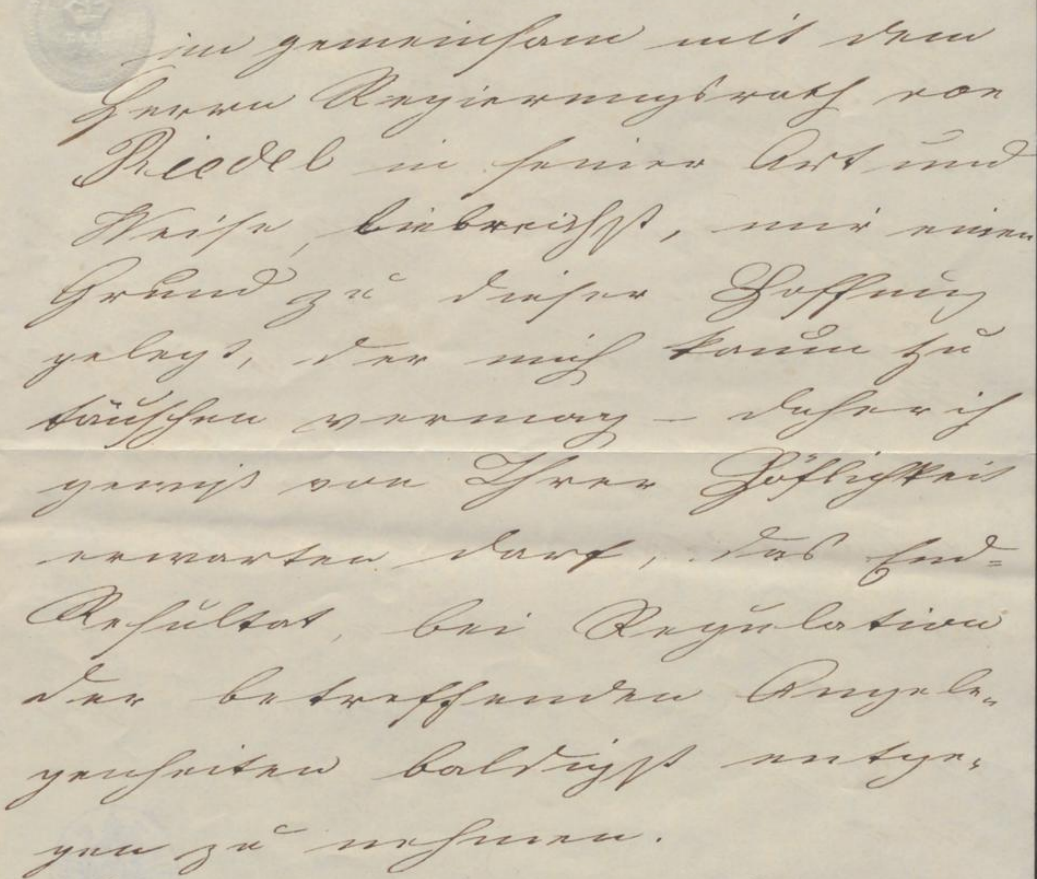 im gemeinsam mit dem
Herrn Regierungsrath von
Riedel in seiner Art und
Weise, liebreichst, mir einen
Grund zu dieser Hoffnung
gelegt, der mich kaum zu
täuschen vermag – daher ich
gewiß von Ihrer Höflichkeit
erwarten darf, das End=
Resultat, bei Regulation
der betreffenden Angele-
genheiten baldigst entge-
gen zu nehmen.